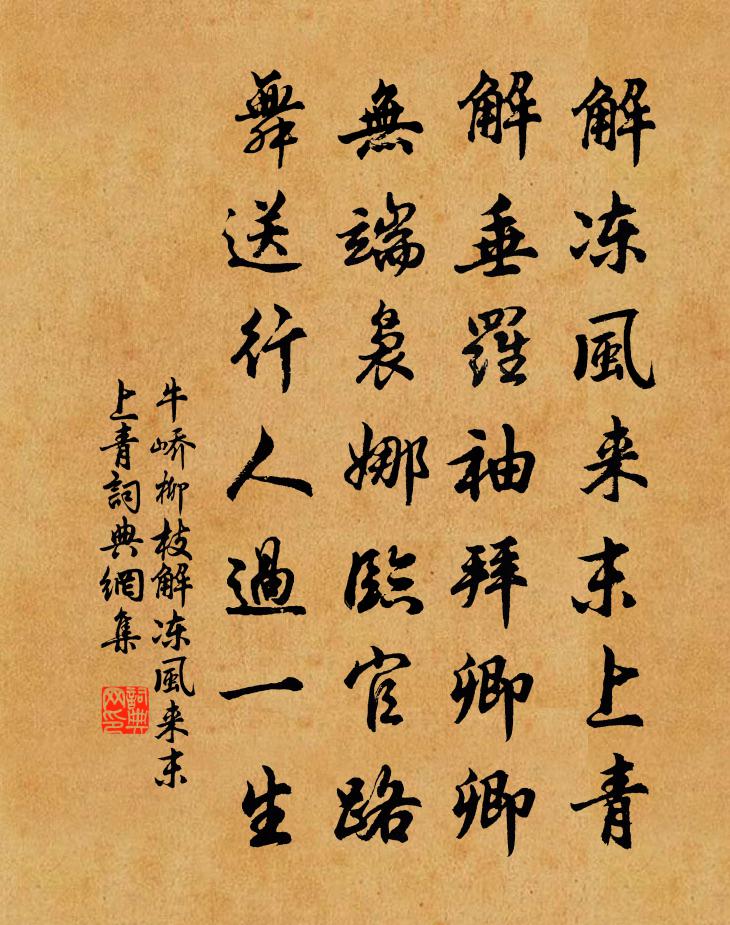 解冻風来末上青
解垂羅袖拜卿卿
無端裊娜臨官路
舞送行人過一生
牛嶠柳枝解冻風来末
上青詞典網集
詞典
网印